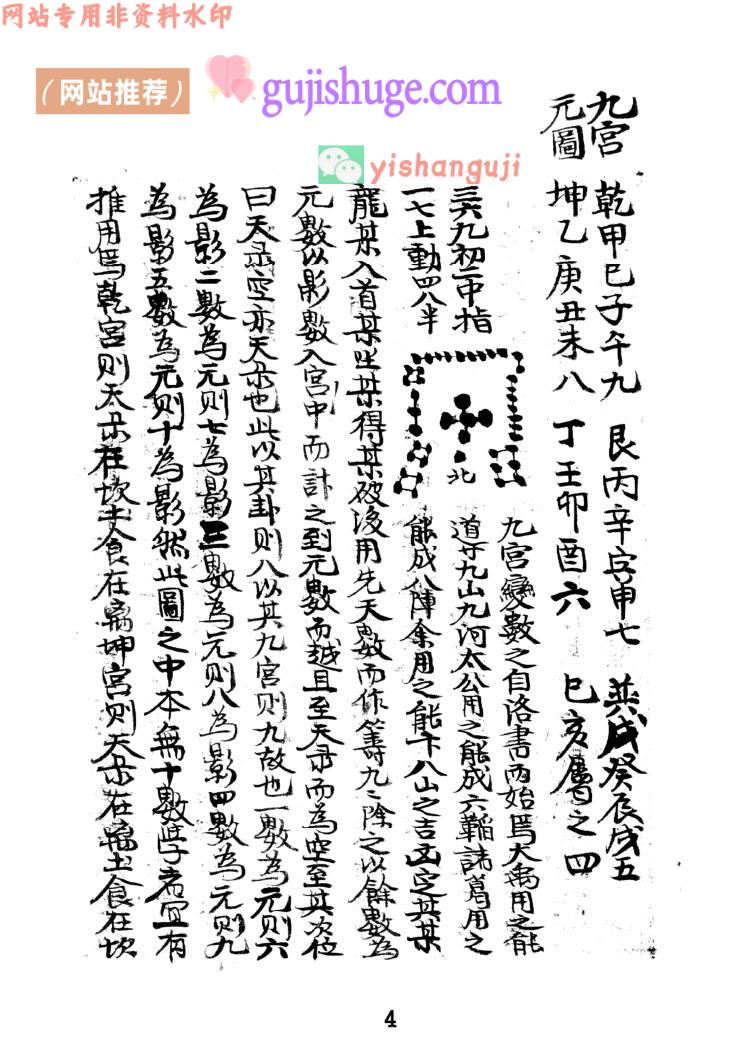 网站专用非资料水印
（网站推荐）
gujishuge.com
yishanguji
九宮元圖
乾甲巳子午九 艮丙辛字申七 巽戍癸辰戍五
坤乙庚丑未八 丁壬卯酉六 巳亥屬之四
三六九初二中指
一七上動四八半
北
九宮變數之自洛書而始焉大禹用之能
道九山九河太公用之能成六韜諸葛用之
能成八陣余用之能卞八山之吉凶定其某
龍某入首某坐某得某破後用先天數而作籌九二除之以餘數為
元數以影數入宮中而計之到元數而越且至天彔而為空至其次位
曰天彔空亦天彔也此以其卦則八以其九宮則九故也一數為元則六
為影二數為元則七為影三數為元則八為影四數為元則九
為影五數為元則十為影然此圖之中本無十數學者宜有
推用焉乾宮則天彔在坎土食在离坤宮則天彔在离土食在坎
4